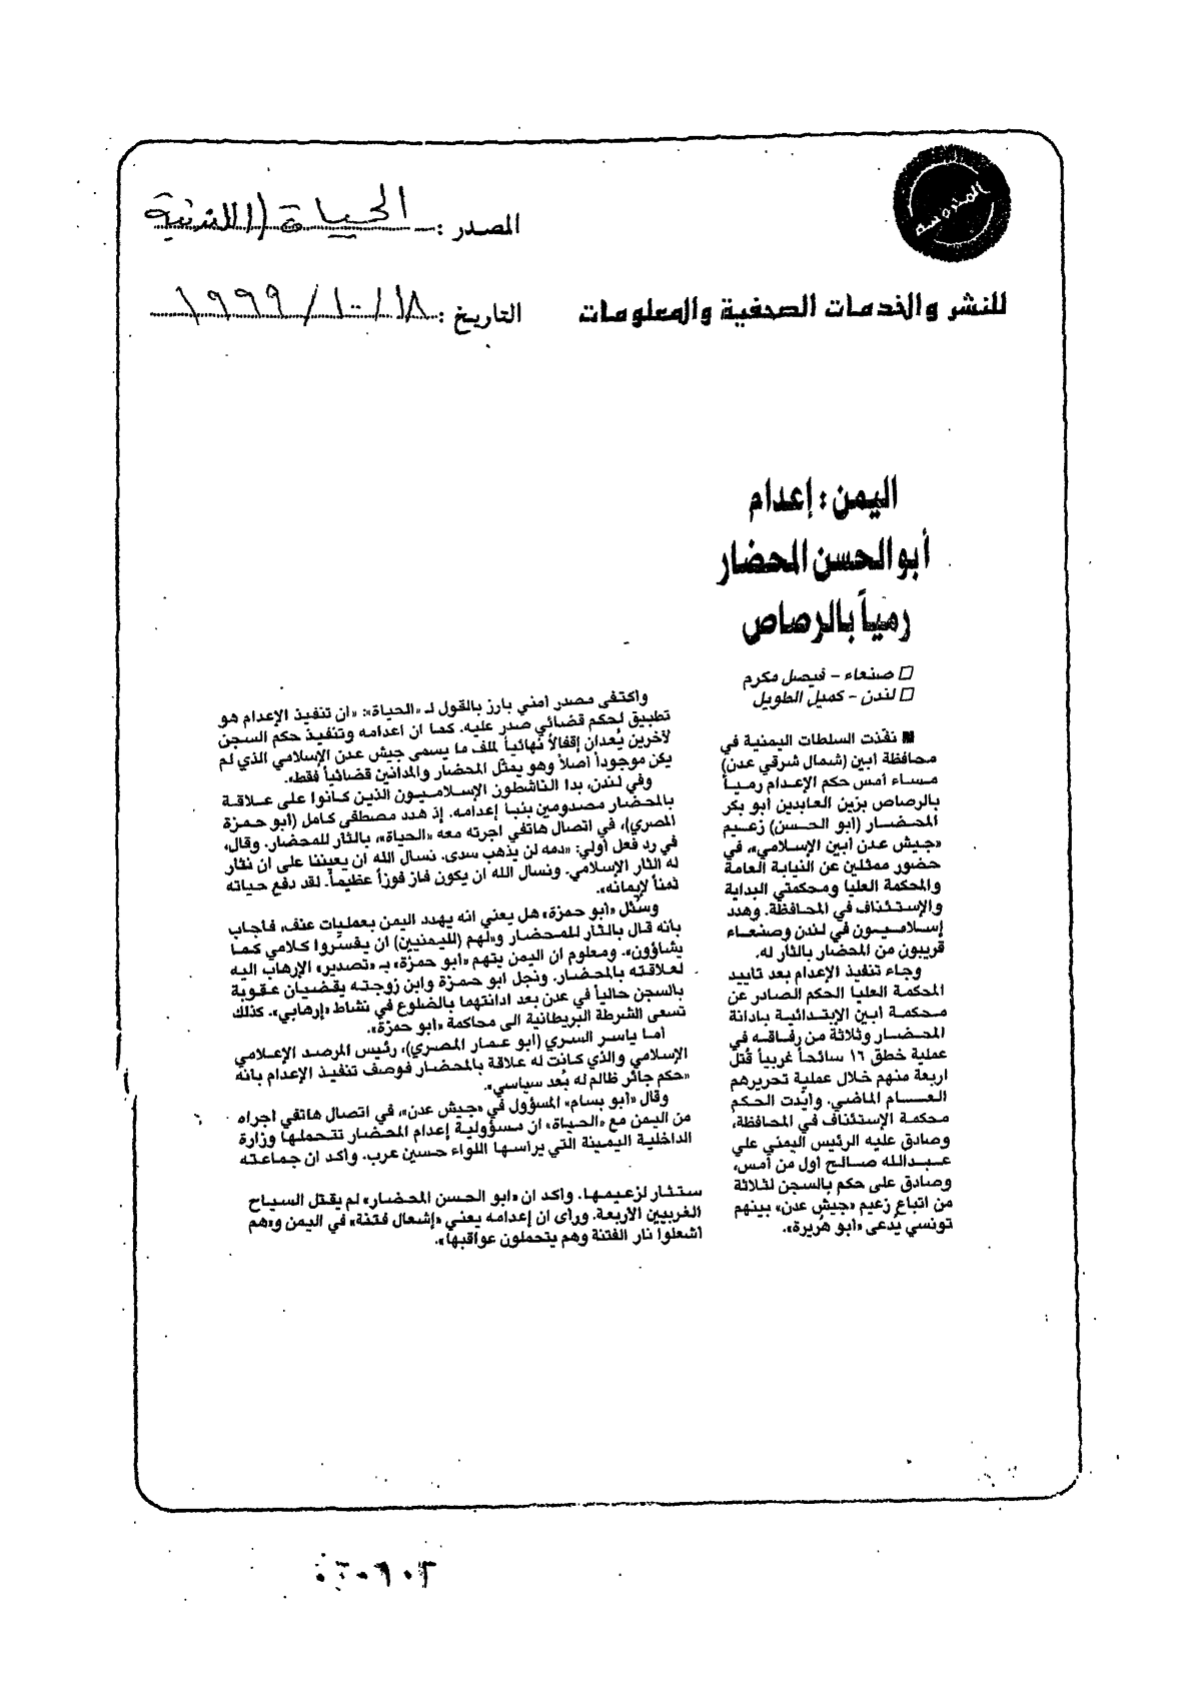 المصدر : الحياة (اللندنية
للنشر والخدمات الصحفية والمعلومات
التاريخ : ١٩٩٩/١٠/١٨
اليمن : إعدام
أبو الحسن المحضار
رمياً بالرصاص
□ صنعاء - فيصل مكرم
□ لندن - كميل الطويل
■ نفّذت السلطات اليمنية في
محافظة ابين (شمال شرقي عدن)
مساء امس حكم الإعدام رمياً
بالرصاص بزين العابدين ابو بكر
المحضار (ابو الحسن) زعيم
«جيش عدن أبين الإسلامي»، في
حضور ممثلين عن النيابة العامة
والمحكمة العليا ومحكمتي البداية
والإستئناف في المحافظة. وهدد
إسلاميون في لندن وصنعاء
قريبون من المحضار بالثار له.
وجاء تنفيذ الإعدام بعد تاييد
المحكمة العليا الحكم الصادر عن
محكمة أبين الإبتدائية بادانة
المحضار وثلاثة من رفاقه في
عملية خطق ١٦ سائحاً غربياً قُتل
اربعة منهم خلال عملية تحريرهم
العام الماضي. وايّدت الحكم
محكمة الإستئناف في المحافظة،
وصادق عليه الرئيس اليمني علي
عبدالله صالح اول من أمس،
وصادق على حكم بالسجن لثلاثة
من اتباع زعيم «جيش عدن» بينهم
تونسي يُدعى «ابو هُريرة».
واكتفى مصدر امني بارز بالقول لـ «الحياة»: «ان تنفيذ الإعدام هو
تطبيق لحكم قضائي صدر عليه. كما ان اعدامه وتنفيذ حكم السجن
لآخرين يُعدان إقفالاً نهائياً لملف ما يسمى جيش عدن الإسلامي الذي لم
يكن موجوداً اصلاً وهو يمثل المحضار والمدانين قضائياً فقط».
وفي لندن، بدا الناشطون الإسلاميون الذين كانوا على علاقة
بالمحضار مصدومين بنبا إعدامه. إذ هدد مصطفى كامل (ابو حمزة
المصري)، في اتصال هاتفي اجرته معه «الحياة»، بالثار للمحضار. وقال،
في رد فعل أولي: «دمه لن يذهب سدى. نسال الله ان يعيننا على ان نثار
له الثار الإسلامي. ونسال الله ان يكون فاز فوزاً عظيماً. لقد دفع حياته
ثمناً لإيمانه».
وسُئل «ابو حمزة» هل يعني انه يهدد اليمن بعمليات عنف، فاجاب
بانه قال بالثار للمحضار و«لهم (لليمنيين) ان يفسّروا كلامي كما
يشاؤون». ومعلوم ان اليمن يتهم «ابو حمزة» بـ «تصدير» الإرهاب اليه
لعلاقته بالمحضار. ونجل ابو حمزة وابن زوجته يقضيان عقوبة
بالسجن حالياً في عدن بعد ادانتهما بالضلوع في نشاط «إرهابي». كذلك
تسعى الشرطة البريطانية الى محاكمة «ابو حمزة».
اما ياسر السري (ابو عمار المصري)، رئيس المرصد الإعلامي
الإسلامي والذي كانت له علاقة بالمحضار فوصف تنفيذ الإعدام بانه
«حكم جائر ظالم له بُعد سياسي».
وقال «ابو بسام» المسؤول في «جيش عدن»، في اتصال هاتفي اجراه
من اليمن مع «الحياة» ان مسؤولية إعدام المحضار تتحملها وزارة
الداخلية اليمينة التي يراسها اللواء حسين عرب. واكد ان جماعته
ستثار لزعيمها. واكد ان «ابو الحسن المحضار» لم يقتل السياح
الغربيين الاربعة. وراى ان إعدامه يعني «إشعال فتنة» في اليمن و«هم
أشعلوا نار الفتنة وهم يتحملون عواقبها».